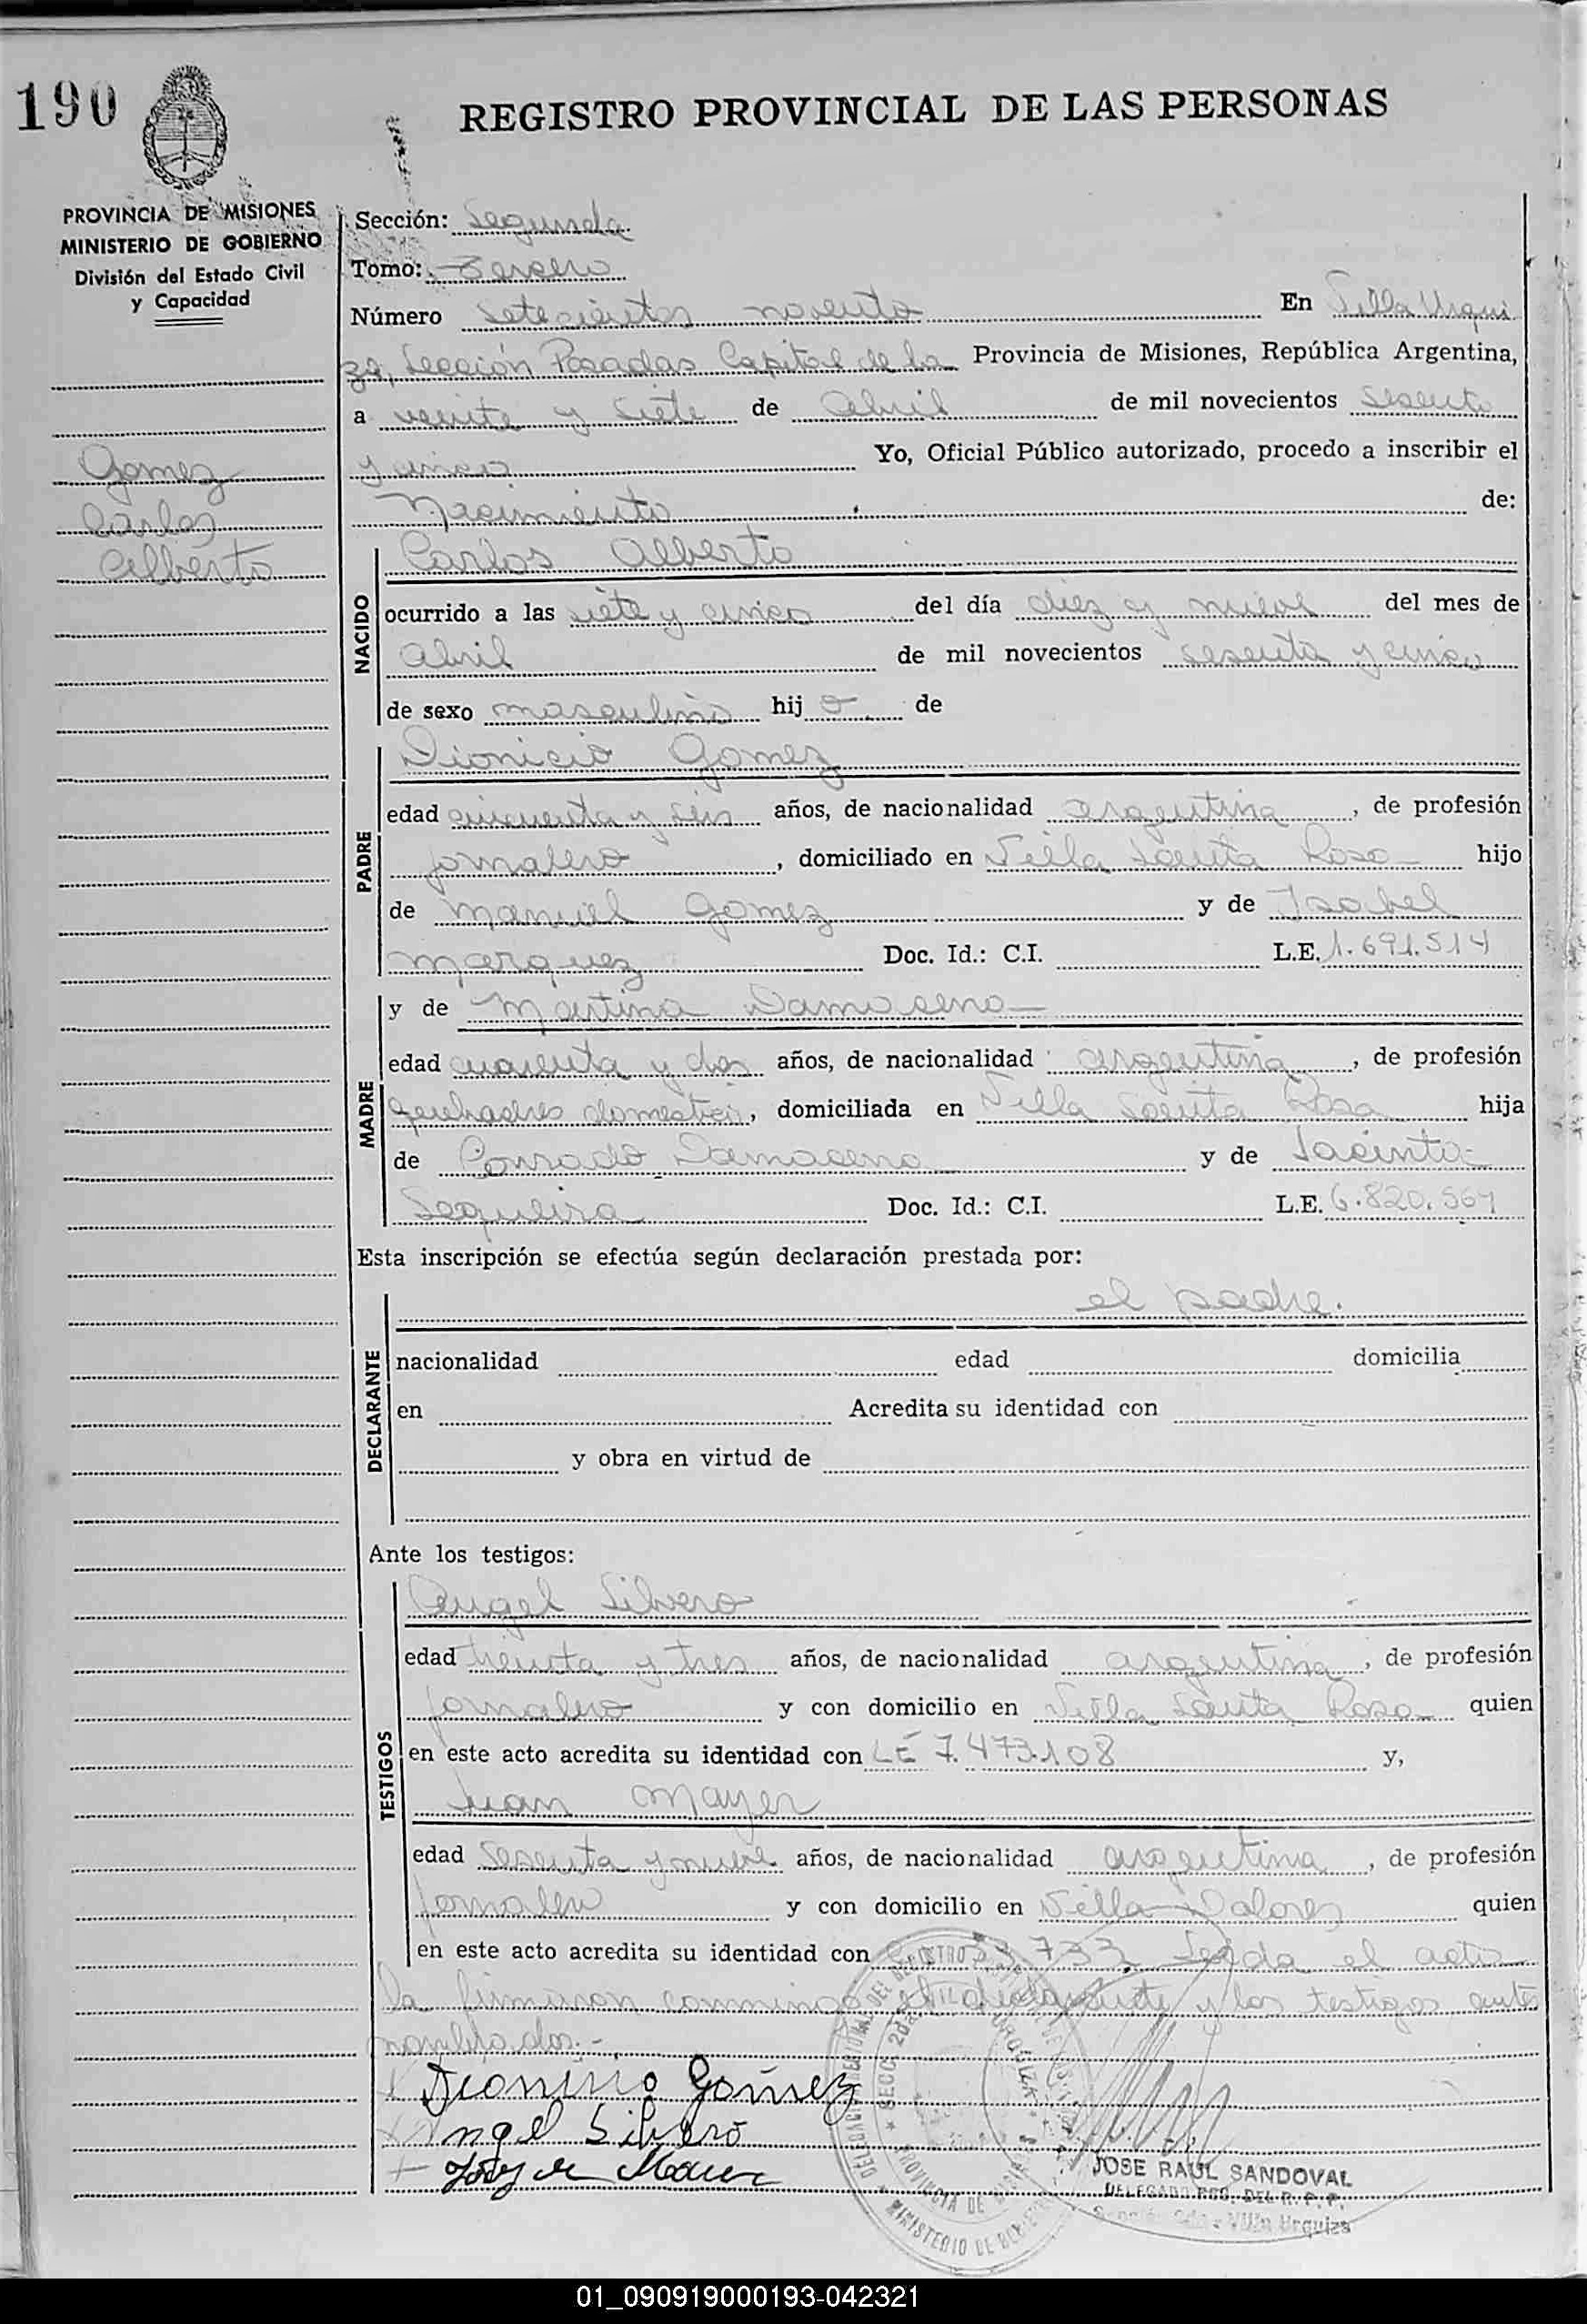 190
REGISTRO PROVINCIAL DE LAS PERSONAS
PROVINCIA DE MISIONES
MINISTERIO DE GOBIERNO
División del Estado Civil
y Capacidad
Gomez
Carlos
Alberto
Sección: Segunda
Tomo: Tercero
Número setecientos noventa En Villa Urqui
za, Sección Posadas Capital de la Provincia de Misiones, República Argentina,
a veinte y siete de abril de mil novecientos sesenta
y cinco Yo, Oficial Público autorizado, procedo a inscribir el
Nacimiento de:
NACIDO
Carlos Alberto
ocurrido a las siete y cinco del día diez y nueve del mes de
abril de mil novecientos sesenta y cinco
de sexo masculino hij o de
PADRE
Dionicio Gomez
edad cincuenta y seis años, de nacionalidad argentina, de profesión
jornalero, domiciliado en Villa Santa Rosa hijo
de Manuel Gomez y de Isabel
Marquez Doc. Id.: C.I. L.E. 1.691.514
MADRE
y de Martina Damaceno
edad cuarenta y dos años, de nacionalidad argentina, de profesión
quehaceres domesticos, domiciliada en Villa Santa Rosa hija
de Conrado Damaceno y de Jacinta
Sequeira Doc. Id.: C.I. L.E. 6.820.564
Esta inscripción se efectúa según declaración prestada por:
DECLARANTE
el padre.
nacionalidad edad domicilia
en Acredita su identidad con
y obra en virtud de
Ante los testigos:
TESTIGOS
Angel Silvero
edad treinta y tres años, de nacionalidad argentina, de profesión
jornalero y con domicilio en Villa Santa Rosa quien
en este acto acredita su identidad con LE 7.473.108 y,
Juan Mayer
edad sesenta y nueve años, de nacionalidad argentina, de profesión
jornalero y con domicilio en Villa Dolores quien
en este acto acredita su identidad con 733 Leída el acta
la firmaron conmigo el declarante y los testigos ante
nombrados.-
Dionisio Gomez
Angel Silvero
JOSE RAUL SANDOVAL
DELEGADO RGO. DEL R. P. P.
Sección 2da - Villa Urquiza
01_090919000193-042321